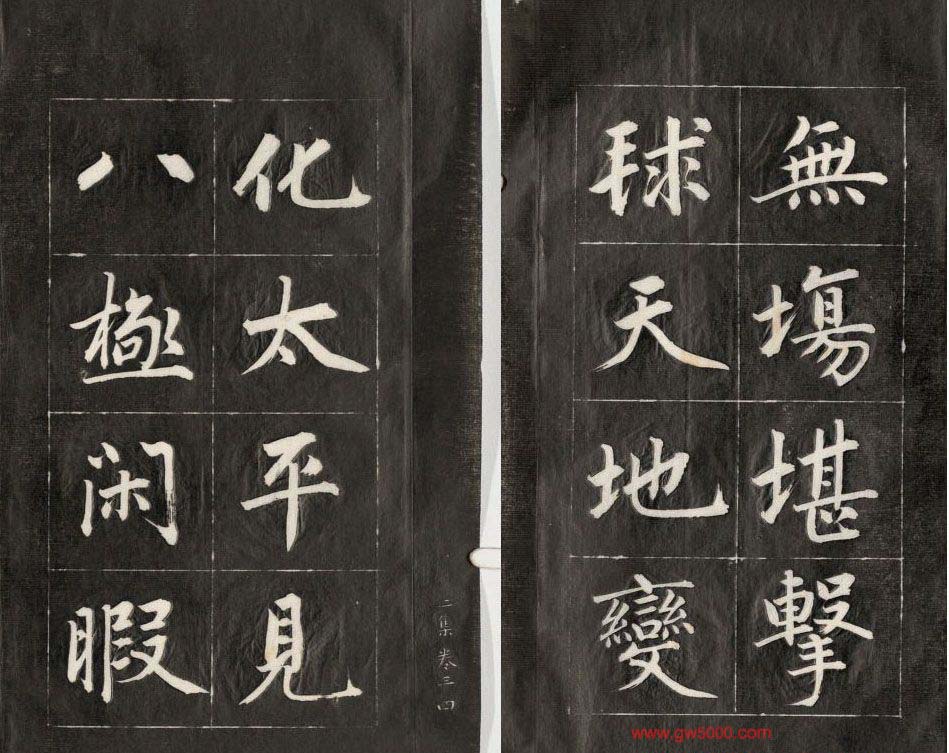 無塲堪擊
球天地變
化太平見
八極閑暇
二集卷三 四
www.gw5000.com